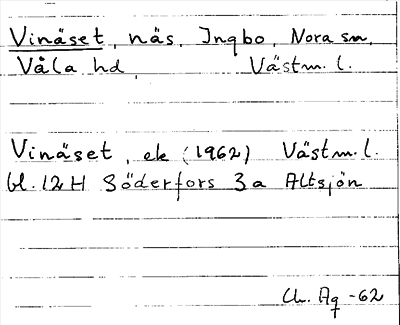 Vinäset, näs, Ingbo, Nora sn,
Våla hd, Västm. l.
Vinäset, ek (1962) Västm. l.
bl. 12H Söderfors 3a Altsjön
Ag -62